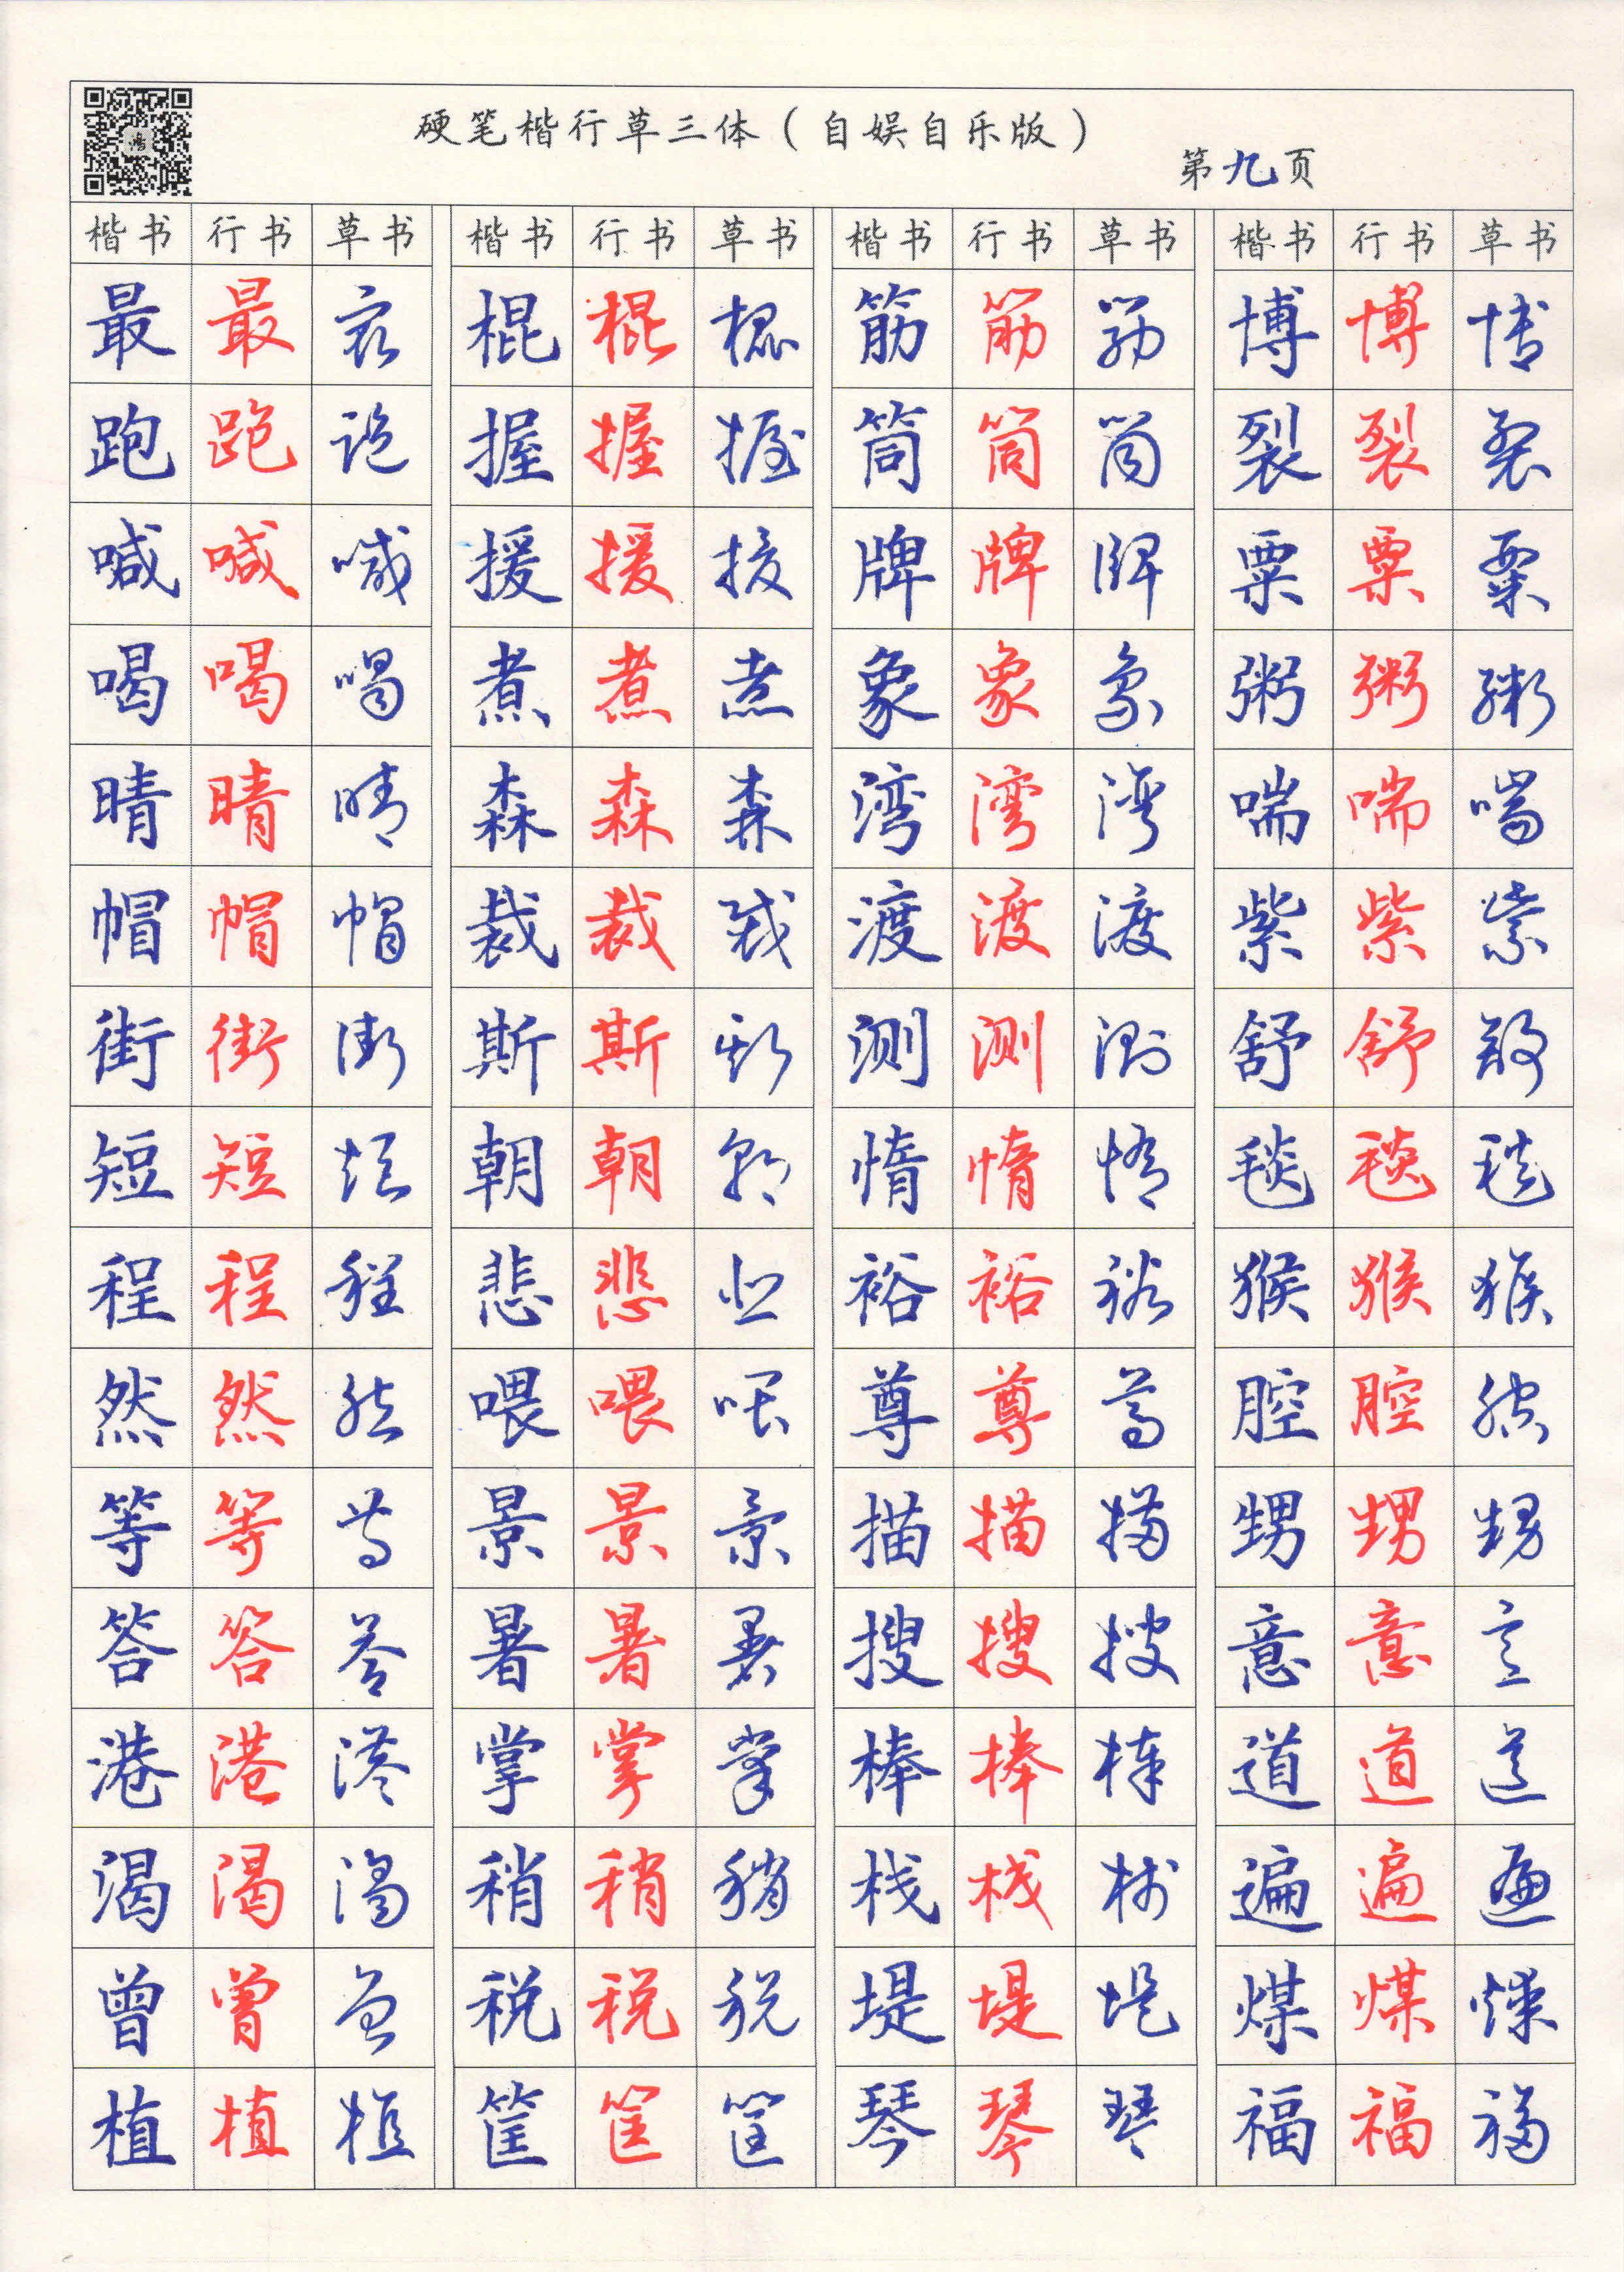 硬笔楷行草三体（自娱自乐版）
第九页
楷书 行书 草书 楷书 行书 草书 楷书 行书 草书 楷书 行书 草书
最 最 最 棍 棍 棍 筋 筋 筋 博 博 博
跑 跑 跑 握 握 握 筒 筒 筒 裂 裂 裂
喊 喊 喊 援 援 援 牌 牌 牌 粟 粟 粟
喝 喝 喝 煮 煮 煮 象 象 象 粥 粥 粥
晴 晴 晴 森 森 森 湾 湾 湾 喘 喘 喘
帽 帽 帽 裁 裁 裁 渡 渡 渡 紫 紫 紫
街 街 街 斯 斯 斯 测 测 测 舒 舒 舒
短 短 短 朝 朝 朝 惰 惰 惰 毯 毯 毯
程 程 程 悲 悲 悲 裕 裕 裕 猴 猴 猴
然 然 然 喂 喂 喂 尊 尊 尊 腔 腔 腔
等 等 等 景 景 景 描 描 描 甥 甥 甥
答 答 答 暑 暑 暑 搜 搜 搜 意 意 意
港 港 港 掌 掌 掌 棒 棒 棒 道 道 道
渴 渴 渴 稍 稍 稍 栈 栈 栈 遍 遍 遍
曾 曾 曾 税 税 税 堤 堤 堤 煤 煤 煤
植 植 植 筐 筐 筐 琴 琴 琴 福 福 福